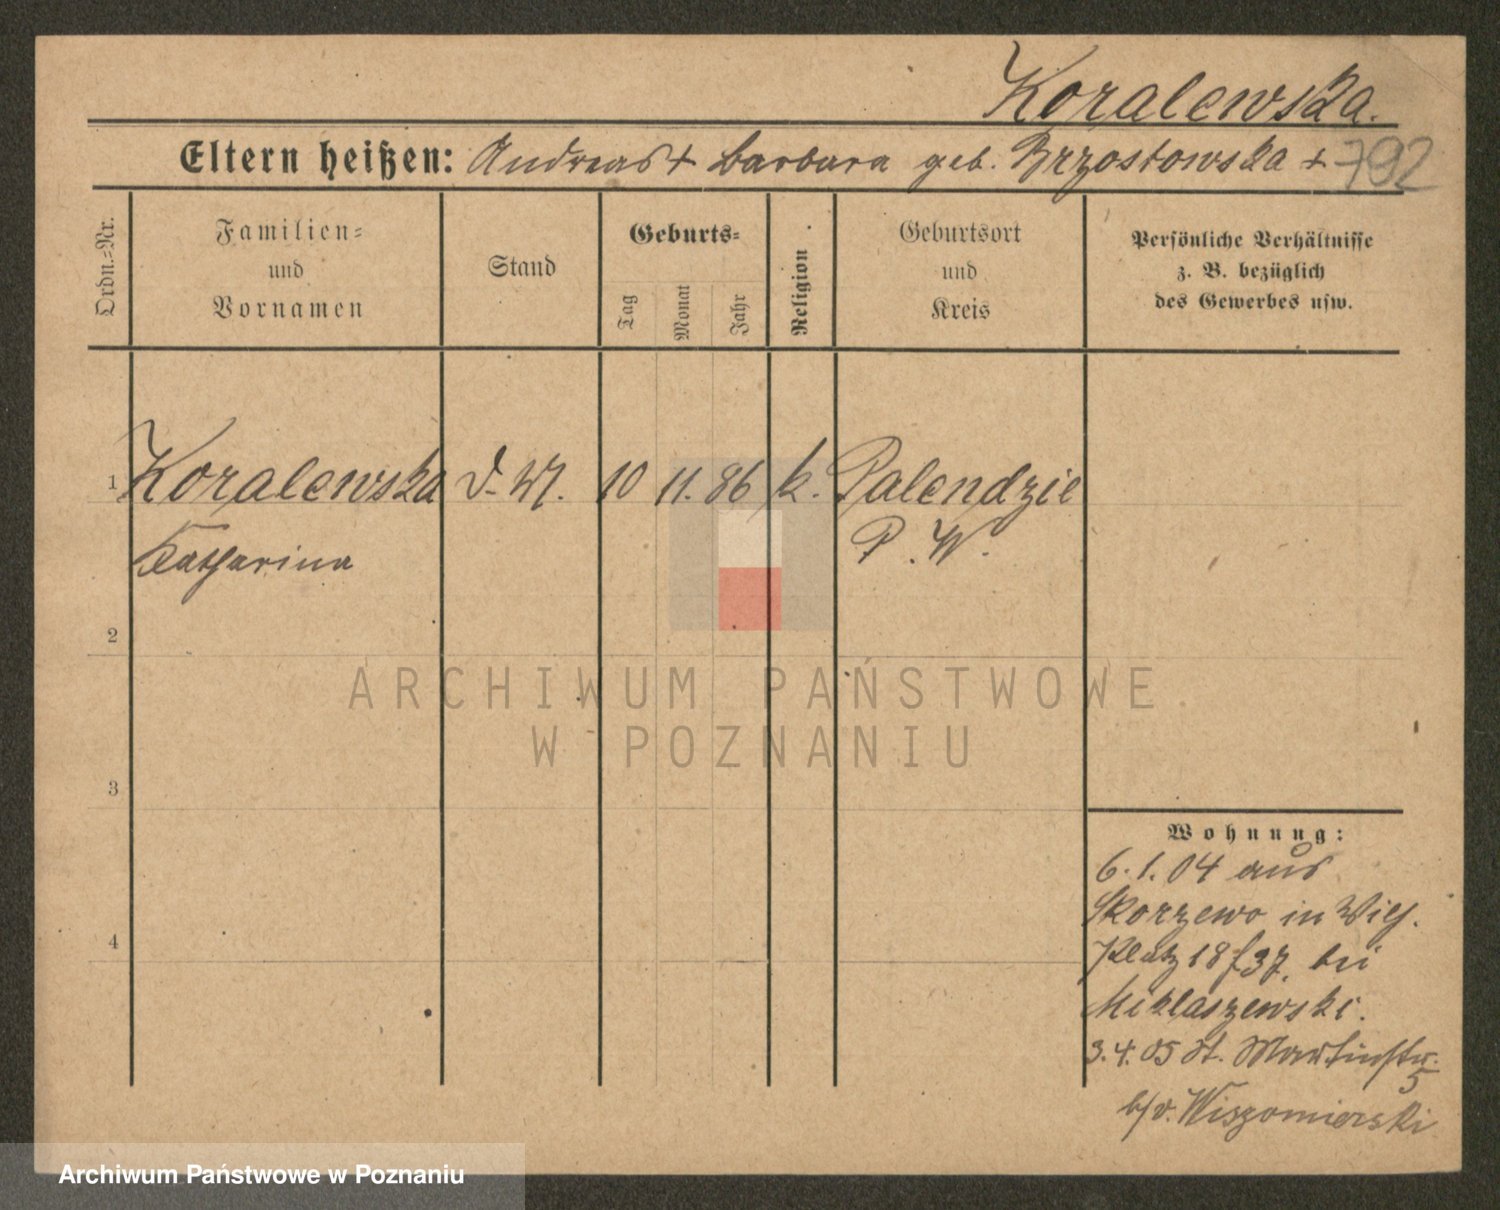 Koralewska.
Eltern heißen: Andreas + Barbara geb. Brzostowska +
792
Ordn.=Nr.
Familien=
und
Vornamen
Stand
Geburts=
Tag
Monat
Jahr
Religion
Geburtsort
und
Kreis
Persönliche Verhältnisse
z. B. bezüglich
des Gewerbes usw.
1 Koralewska D. M. 10 11. 86 k. Palendzie
Katharina P. W.
2
3
4
Wohnung:
6. 1. 04 aus
Skorzewo in Wilh.
Platz 18 bei
Miklaszewski.
3. 4. 05 St. Martinstr.
5
b/v. Wiszomierski
ARCHIWUM PAŃSTWOWE
W POZNANIU
Archiwum Państwowe w Poznaniu